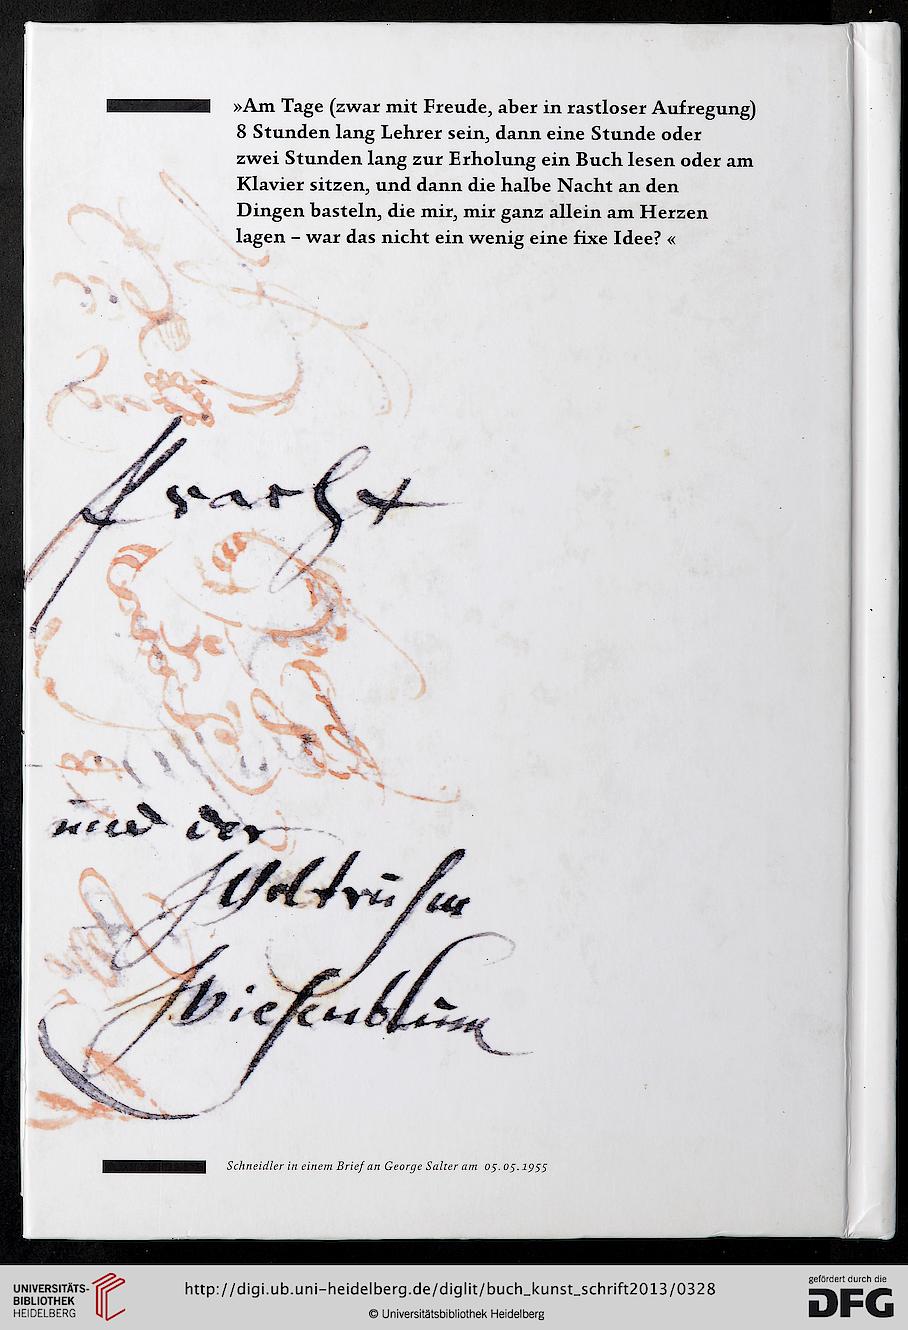 »Am Tage (zwar mit Freude, aber in rastloser Aufregung)
8 Stunden lang Lehrer sein, dann eine Stunde oder
zwei Stunden lang zur Erholung ein Buch lesen oder am
Klavier sitzen, und dann die halbe Nacht an den
Dingen basteln, die mir, mir ganz allein am Herzen
lagen – war das nicht ein wenig eine fixe Idee? «
und der
Weltruhm
Wiesenblum
Schneidler in einem Brief an George Salter am 05.05.1955
UNIVERSITÄTS-
BIBLIOTHEK
HEIDELBERG
http://digi.ub.uni-heidelberg.de/diglit/buch_kunst_schrift2013/0328
© Universitätsbibliothek Heidelberg
gefördert durch die
DFG